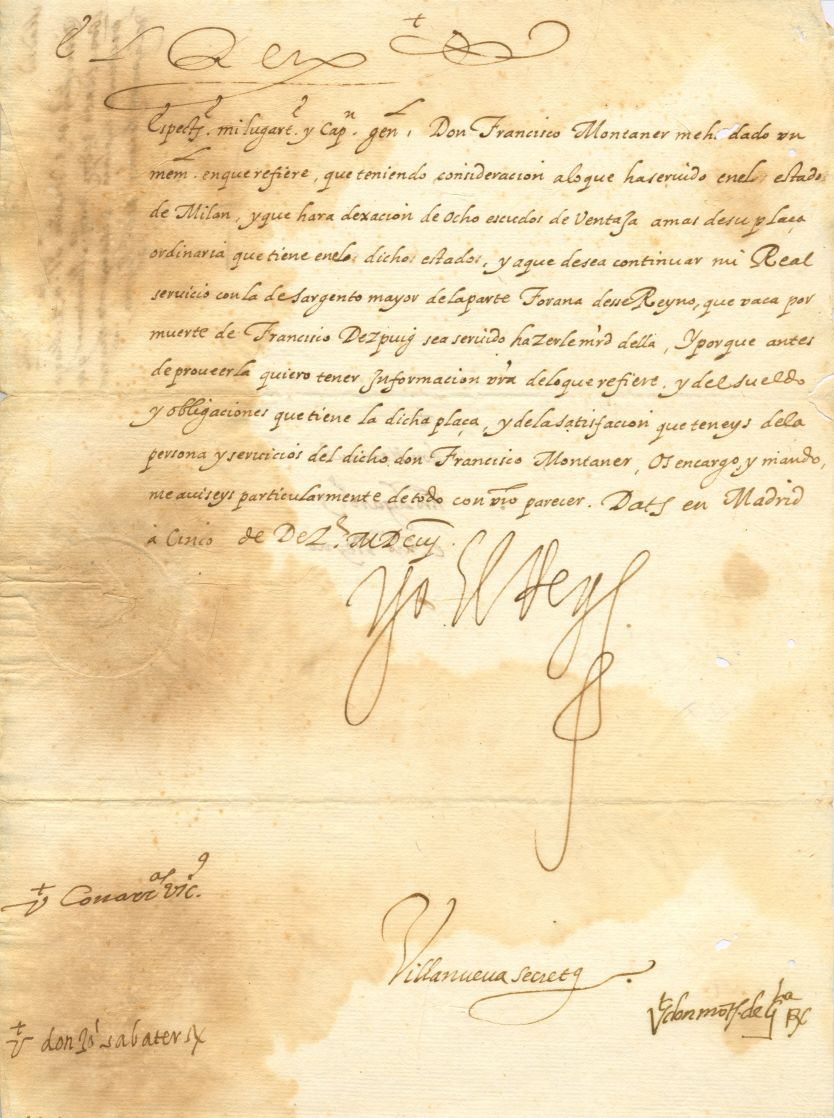 El Rey
Espect.e mi lugart.e y Cap.n gen.l, Don Francisco Montaner me ha dado vn
mem.l en que refiere, que teniendo consideracion alo que ha seruido enelos estados
de Milan, y que hara dexacion de Ocho escudos de Ventaja amas desu plaça
ordinaria que tiene enelos dichos estados, y a que desea continuar mi Real
seruicio con la de Sargento mayor de la parte Forana desse Reyno, que vaca por
muerte de Francisco Dezpuig sea seruido hazerle mrd della, Y porque antes
de proueerla quiero tener Informacion vra delo que refiere, y del sueldo
y obligaciones que tiene la dicha plaça, y dela satisfacion que teneys dela
persona y seruicios del dicho don Francisco Montaner, Os encargo, y mando,
me auiseys particularmente de todo con vro parecer. Dat. en Madrid
à Cinco de Dez.e
Yo El Rey
V.t vic.
Villanueua secret
V.t don de
V.t don sabater